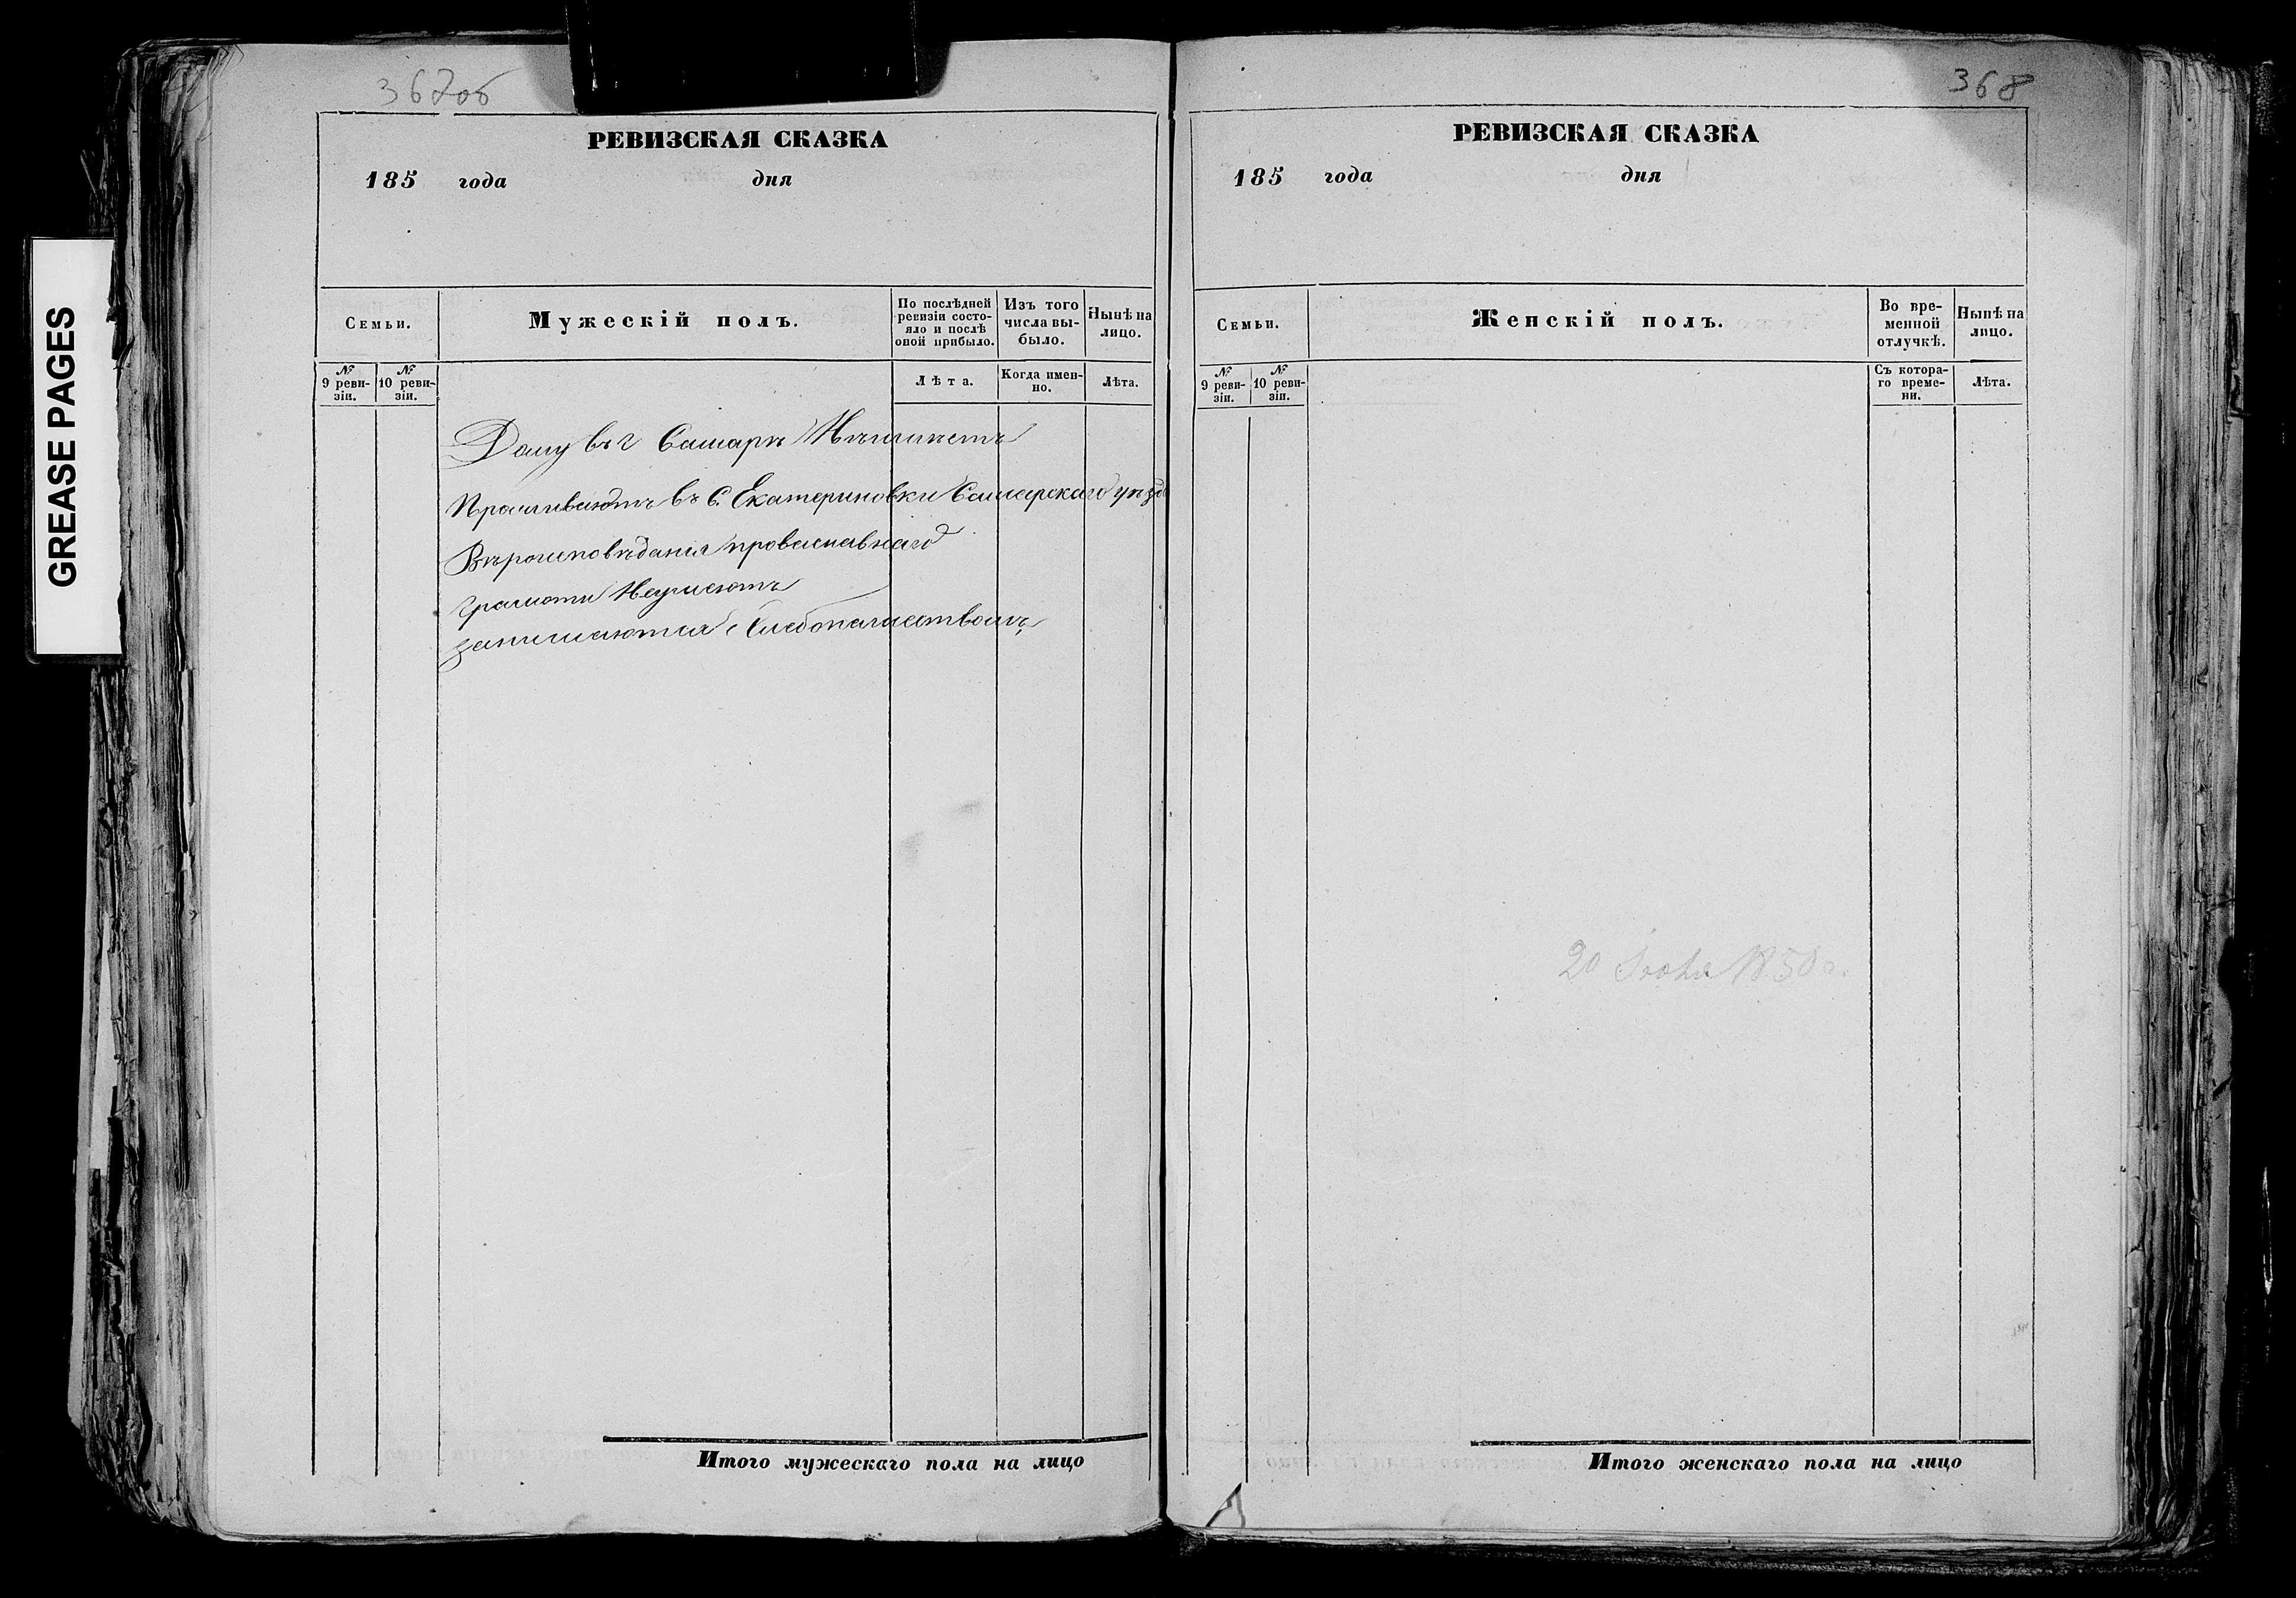 367об
РЕВИЗСКАЯ СКАЗКА
185 года дня
Семьи.
Мужескій полъ.
По послѣдней ревизіи состояло и послѣ оной прибыло.
Изъ того числа выбыло.
Нынѣ на лицо.
№ 9 ревизіи.
№ 10 ревизіи.
Лѣта.
Когда именно.
Лѣта.
Дому въ г Самарѣ Неимѣетъ
Проживаютъ въ С. Екатериновки Самарскаго уѣзда
Вѣроисповѣданія православнаго
грамоти Неумеютъ
занимаются Хлебопашествомъ
Итого мужескаго пола на лицо
368
РЕВИЗСКАЯ СКАЗКА
185 года дня
Семьи.
Женскій полъ.
Во временной отлучкѣ.
Нынѣ на лицо.
№ 9 ревизіи.
№ 10 ревизіи.
Съ котораго времени.
Лѣта.
20
Итого женскаго пола на лицо
GREASE PAGES